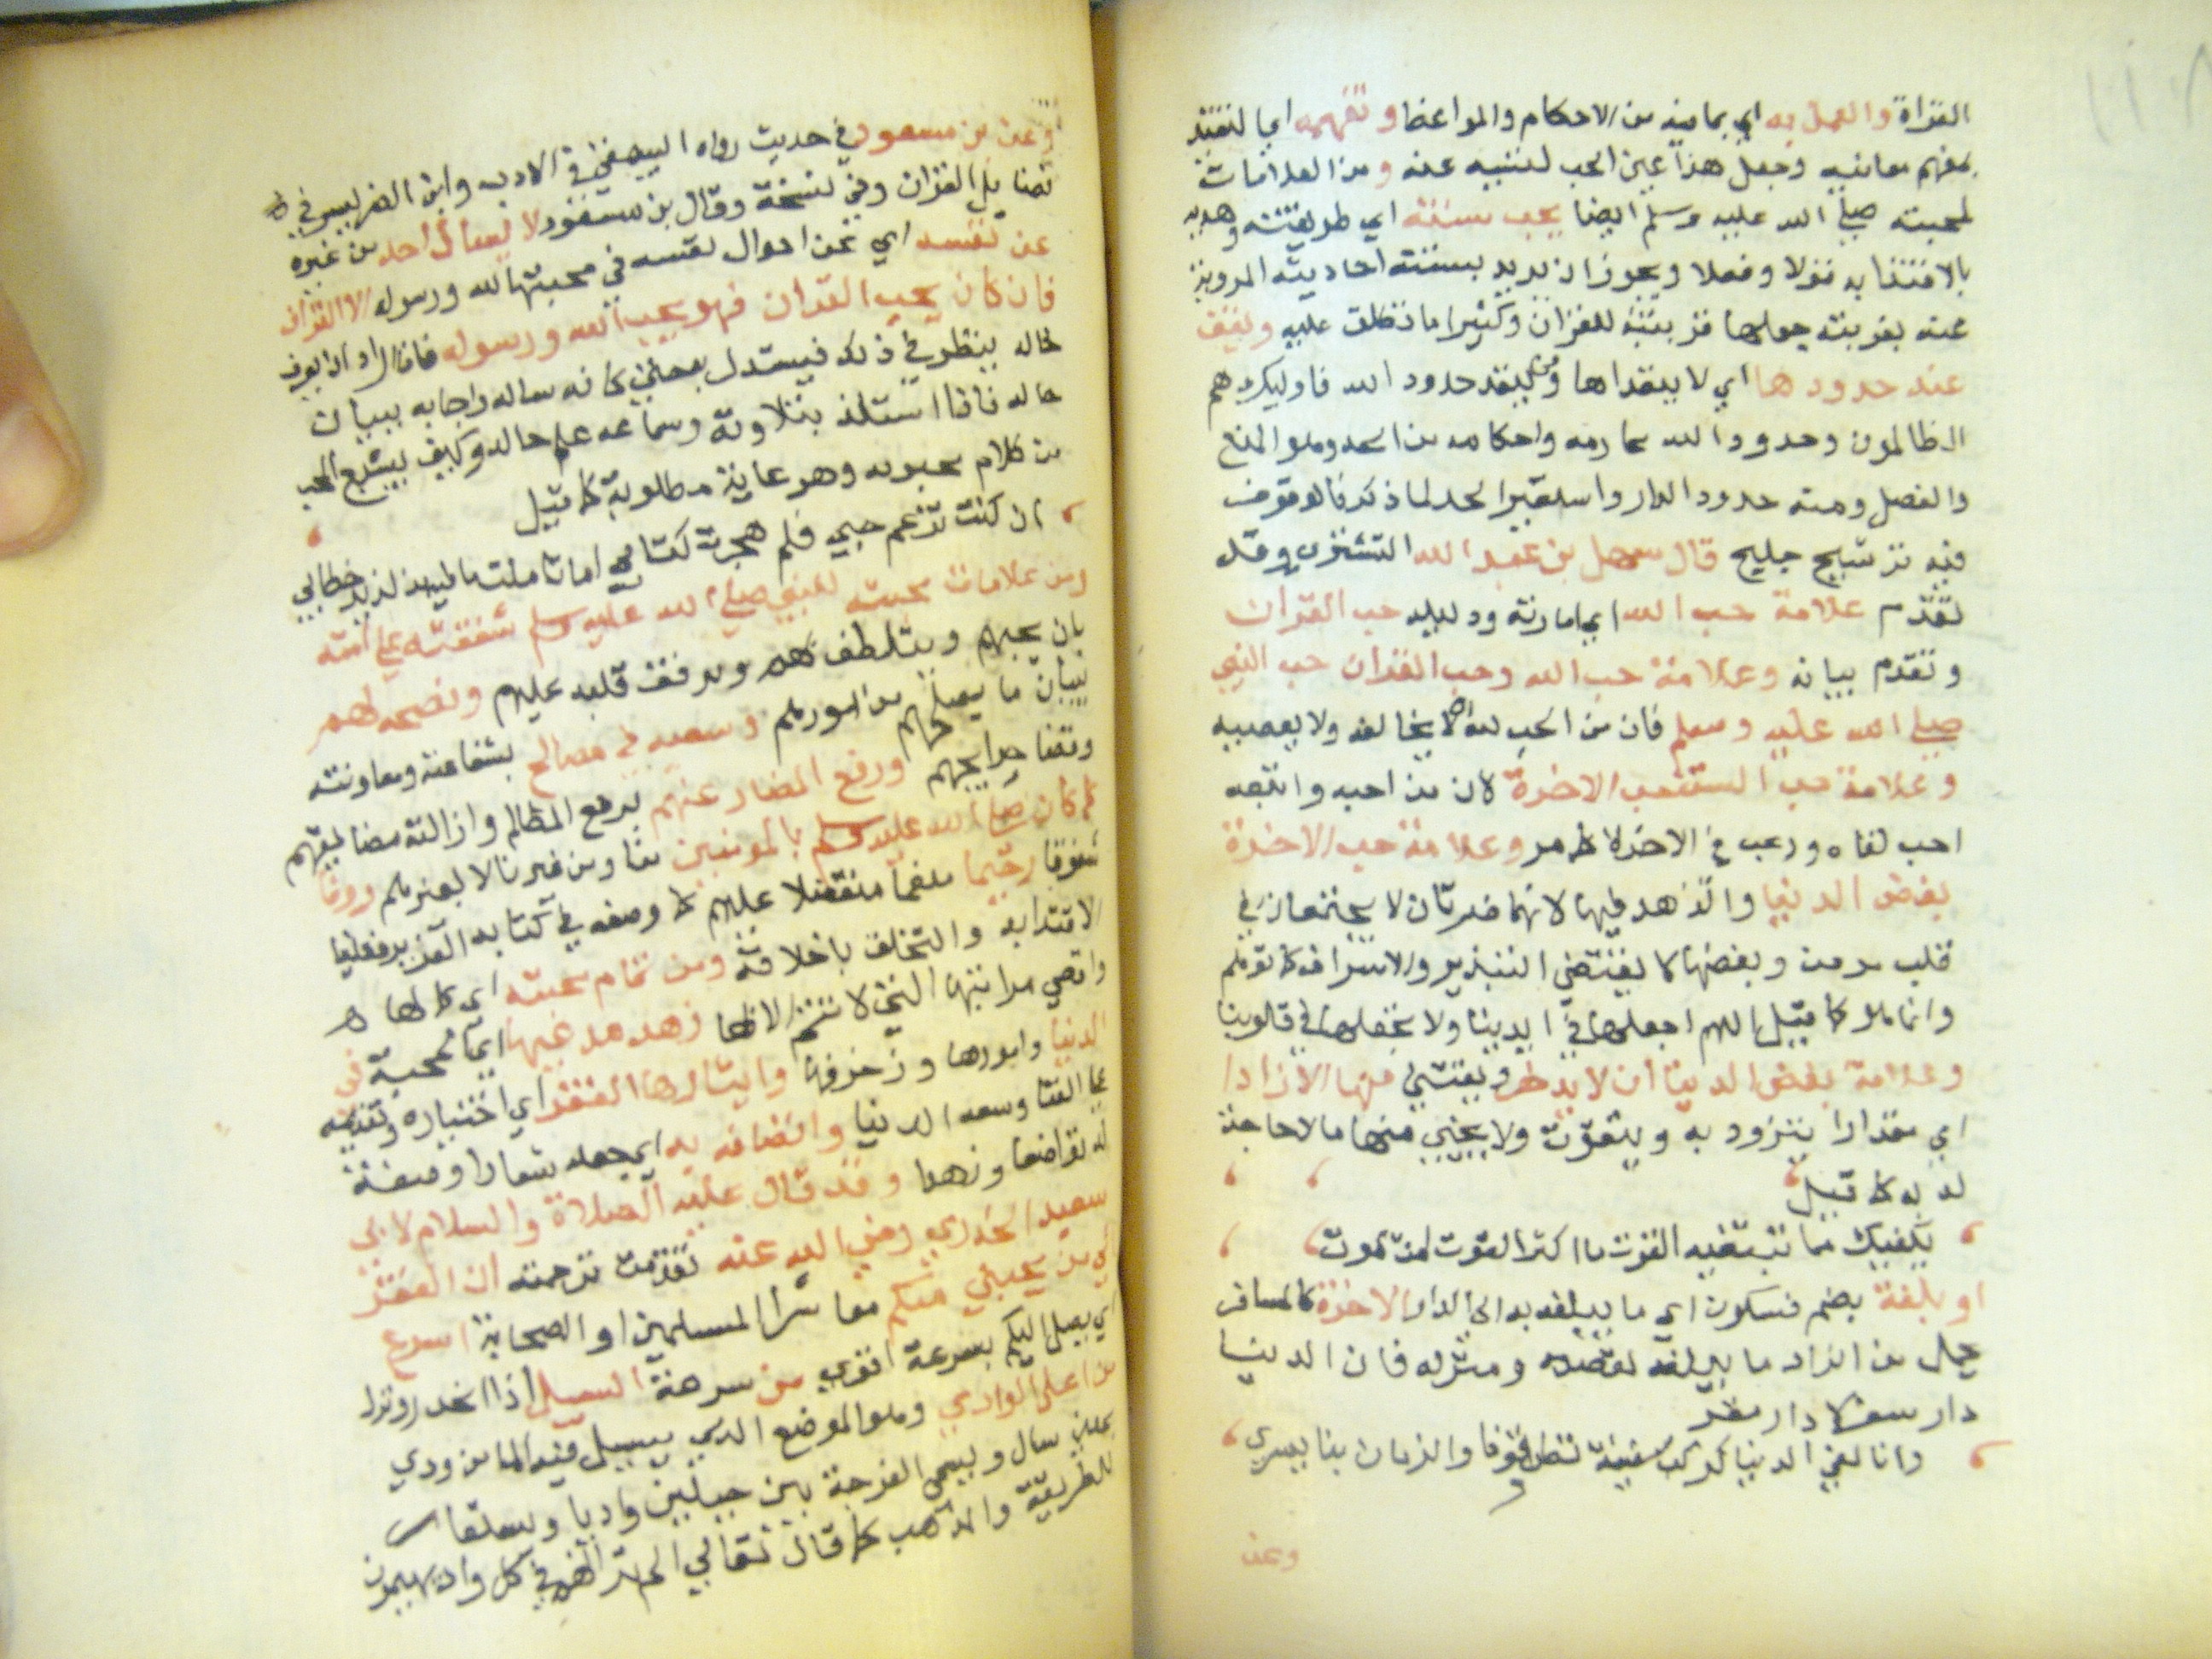 القراة والعمل به اي بما فيه من الاحكام والمواعظ وتفهمه اي لتقيد
بفهم معانيه وجعل هذا عين الحب لتنبيه عنه ومن العلامات
لمحبته صلى الله عليه وسلم ايضا يحب سنته اي طريقته وهديه
بالاقتدا به قولا وفعلا ويجوز ان يريد بسنته احاديثه المروية
عنه بقرينة جعلها قرينة للقران وكثيرا ما تطلق عليه ويقف
عند حدودها اي لا يتعداها ومن يتعد حدود الله فاوليك هم
الظالمون وحدود الله محارمه واحكامه من الحد وهو المنع
والفصل ومنه حدود الدار واستعير الحد لما ذكر فالوقوف
فيه ترشيح مليح قال سهل بن عبد الله التستري وقد
تقدم علامة حب الله اي امارته ودليله حب القران
وتقدم بيانه وعلامة حب الله وحب القران حب النبي
صلى الله عليه وسلم فان من احب لله لا يخالفه ولا يعصيه
وعلامة حب السنة حب الاخرة لان من احبه واتبعه
احب لقاه ورغب في الاخرة كما مر وعلامة حب الاخرة
بغض الدنيا والزهد فيها لانهما ضرتان لا يجتمعان في
قلب مومن وبغضها لا يقتضي التبذير والاسراف كما توهم
وانما هو كما قيل اللهم اجعلها في ايدينا ولا تجعلها في قلوبنا
وعلامة بغض الدنيا ان لا يدخر ويقتني منها الا زادا
اي مقدارا يتزود به ويتقوت ولا يجتبي منها ما لا حاجة
له به كما قيل
يكفيك مما تبتغيه القوت ما اكثر القوت لمن يموت
او بلغة بضم فسكون اي ما يبلغه به الى الدار الاخرة كالمسافر
يحمل من الزاد ما يبلغه لمقصده ومنزله فان الدنيا
دار سفر لا دار مقر
وانا لفي الدنيا كركب سفينة نظن وقوفا والزمان بنا يسري
وعن
وعن بن مسعود في حديث رواه البيهقي في الادب وابن الضريس في
فضايل القران وفي نسخة وقال بن مسعود لا يسال احد من غيره
عن نفسه اي عن احوال نفسه في محبتها لله ورسوله الا القران
فان كان يحب القران فهو يحب الله ورسوله فان اراد ان يعرف
حاله ينظر في ذلك فيستدل بمحبته كانه ساله واجابه ببيان
حاله فاذا استلذ بتلاوته وسماعه علم حاله وكيف يشبع المحب
من كلام محبوبه وهو غاية مطلوبه كما قيل
ان كنت تزعم حبي فلم هجرت كتابي اما تاملت ما فيه من لذيذ خطابي
ومن علامات محبته للنبي صلى الله عليه وسلم شفقته على امته
بان يحبهم ويتلطف بهم ويرفق قلبه عليهم ونصحه لهم
ببيان ما يصلح من امورهم وسعيه في مصالحهم بشفاعته ومعاونته
وقضا حوايجهم ورفع المضار عنهم برفع المظالم وازالة مضايقهم
كما كان صلى الله عليه وسلم بالمومنين منا ومن غيرنا لا لغيرهم روفا
شفوقا رحيما منعما متفضلا عليهم كما وصفه في كتابه العزيز فعلينا
الاقتدا به والتخلق باخلاقه ومن تمام محبته اي كمالها
واقصي مراتبها التي لا تتم الا بها زهد مدعيها اي المحبة في
الدنيا وامورها وزخرفها وايثارها الفقر اي اختياره وتقديمه
على الغنا وسعة الدنيا واتصافه به اي جعله شعارا وصفة
له تواضعا وزهدا وقد قال عليه الصلاة والسلام لابي
سعيد الخدري رضي الله عنه تقدمت ترجمته ان الفقر
الى من يحبني منكم معاشر المسلمين او الصحابة اسرع
اي يصل اليكم بسرعة اقوى من سرعة السيل اذا انحدر ونزل
من اعلى الوادي وهو الموضع الذي يسيل فيه الما من ودي
بمعنى سال ويسمى الفرجة بين جبلين واديا ويستعار
للطريقة والمذهب كما قال تعالي الم تر انهم في كل واد يهيمون